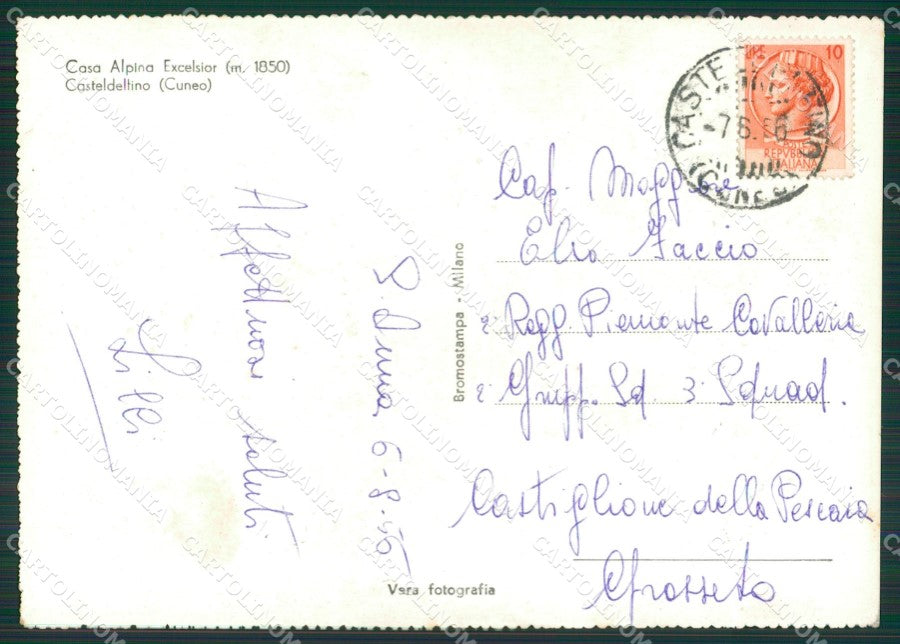 Casa Alpina Excelsior (m. 1850)
Casteldelfino (Cuneo)
10
REPVBBLICA
ITALIANA
CASTELDELFINO
-7.8.56
(CUNEO)
Affettuosi saluti
Lilli
S. Anna 6-8-56
Bromostampa - Milano
Cap. Magg
Elio Faccio
2° Regg Piemonte Cavalleria
2° Grupp. Sq 3° Squad.
Castiglione della Pescaia
Grosseto
Vera fotografia
CARTOLINOMANIA